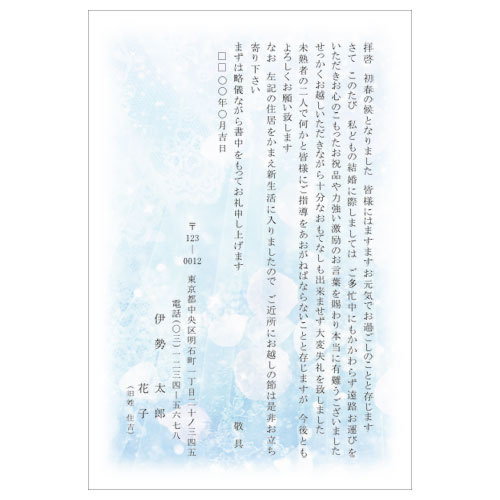 拝啓 初春の候となりました 皆様にはますますお元気でお過ごしのことと存じます
さて このたび 私どもの結婚に際しましては ご多忙中にもかかわらず遠路お運びを
いただきお心のこもったお祝品や力強い激励のお言葉を賜わり本当に有難うございました
せっかくお越しいただきながら十分なおもてなしも出来ませず大変失礼を致しました
未熟者の二人で何かと皆様にご指導をあおがねばならないことと存じますが 今後とも
よろしくお願い致します
なお 左記の住居をかまえ新生活に入りましたので ご近所にお越しの節は是非お立ち
寄り下さい
まずは略儀ながら書中をもってお礼申し上げます
敬具
□□〇〇年〇月吉日
〒123―0012
東京都中央区明石町一丁目二十ノ三四五
電話(〇三)一二三四-五六七八
伊勢 太郎
花子
(旧姓 住吉)